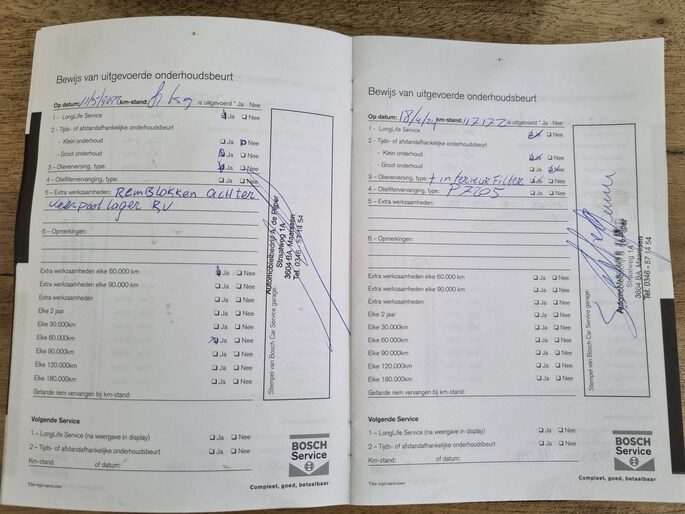 -8-
Bewijs van uitgevoerde onderhoudsbeurt
Op datum: 11/5/ km-stand: is uitgevoerd * Ja Nee
1 - LongLife Service Ja Nee
2 - Tijds- of afstandafhankelijke onderhoudsbeurt
- Klein onderhoud Ja Nee
- Groot onderhoud Ja Nee
3 - Olieverversing, type: Ja Nee
4 - Oliefiltervervanging, type: Ja Nee
5 - Extra werkzaamheden: RemBlokken achter
veerpoot lager RV
6 - Opmerkingen:
Extra werkzaamheden elke 60.000 km Ja Nee
Extra werkzaamheden elke 90.000 km Ja Nee
Extra werkzaamheden Ja Nee
Elke 2 jaar Ja Nee
Elke 30.000km Ja Nee
Elke 60.000km Ja Nee
Elke 90.000km Ja Nee
Elke 120.000km Ja Nee
Elke 180.000km Ja Nee
Getande riem vervangen bij km-stand:
Stempel van Bosch Car Service garage:
Automobielbedrijf A. de Ruijter
Straatweg 1A
3604 BA Maarssen
Tel. 0346 - 57 14 54
Volgende Service
1 – LongLife Service (na weergave in display) Ja Nee
2 – Tijds- of afstandafhankelijke onderhoudsbeurt Ja Nee
Km-stand: of datum:
BOSCH
Service
Compleet, goed, betaalbaar
Bewijs van uitgevoerde onderhoudsbeurt
Op datum: 18/4/24 km-stand: 117172 is uitgevoerd * Ja Nee
1 - LongLife Service Ja Nee
2 - Tijds- of afstandafhankelijke onderhoudsbeurt
- Klein onderhoud Ja Nee
- Groot onderhoud Ja Nee
3 - Olieverversing, type: + interieur Filter Ja Nee
4 - Oliefiltervervanging, type: P7205 Ja Nee
5 - Extra werkzaamheden:
6 - Opmerkingen:
Extra werkzaamheden elke 60.000 km Ja Nee
Extra werkzaamheden elke 90.000 km Ja Nee
Extra werkzaamheden Ja Nee
Elke 2 jaar Ja Nee
Elke 30.000km Ja Nee
Elke 60.000km Ja Nee
Elke 90.000km Ja Nee
Elke 120.000km Ja Nee
Elke 180.000km Ja Nee
Getande riem vervangen bij km-stand:
Stempel van Bosch Car Service garage:
Straatweg 1A
3604 BA Maarssen
Tel. 0346 - 57 14 54
Volgende Service
1 – LongLife Service (na weergave in display) Ja Nee
2 – Tijds- of afstandafhankelijke onderhoudsbeurt Ja Nee
Km-stand: of datum:
BOSCH
Service
Compleet, goed, betaalbaar